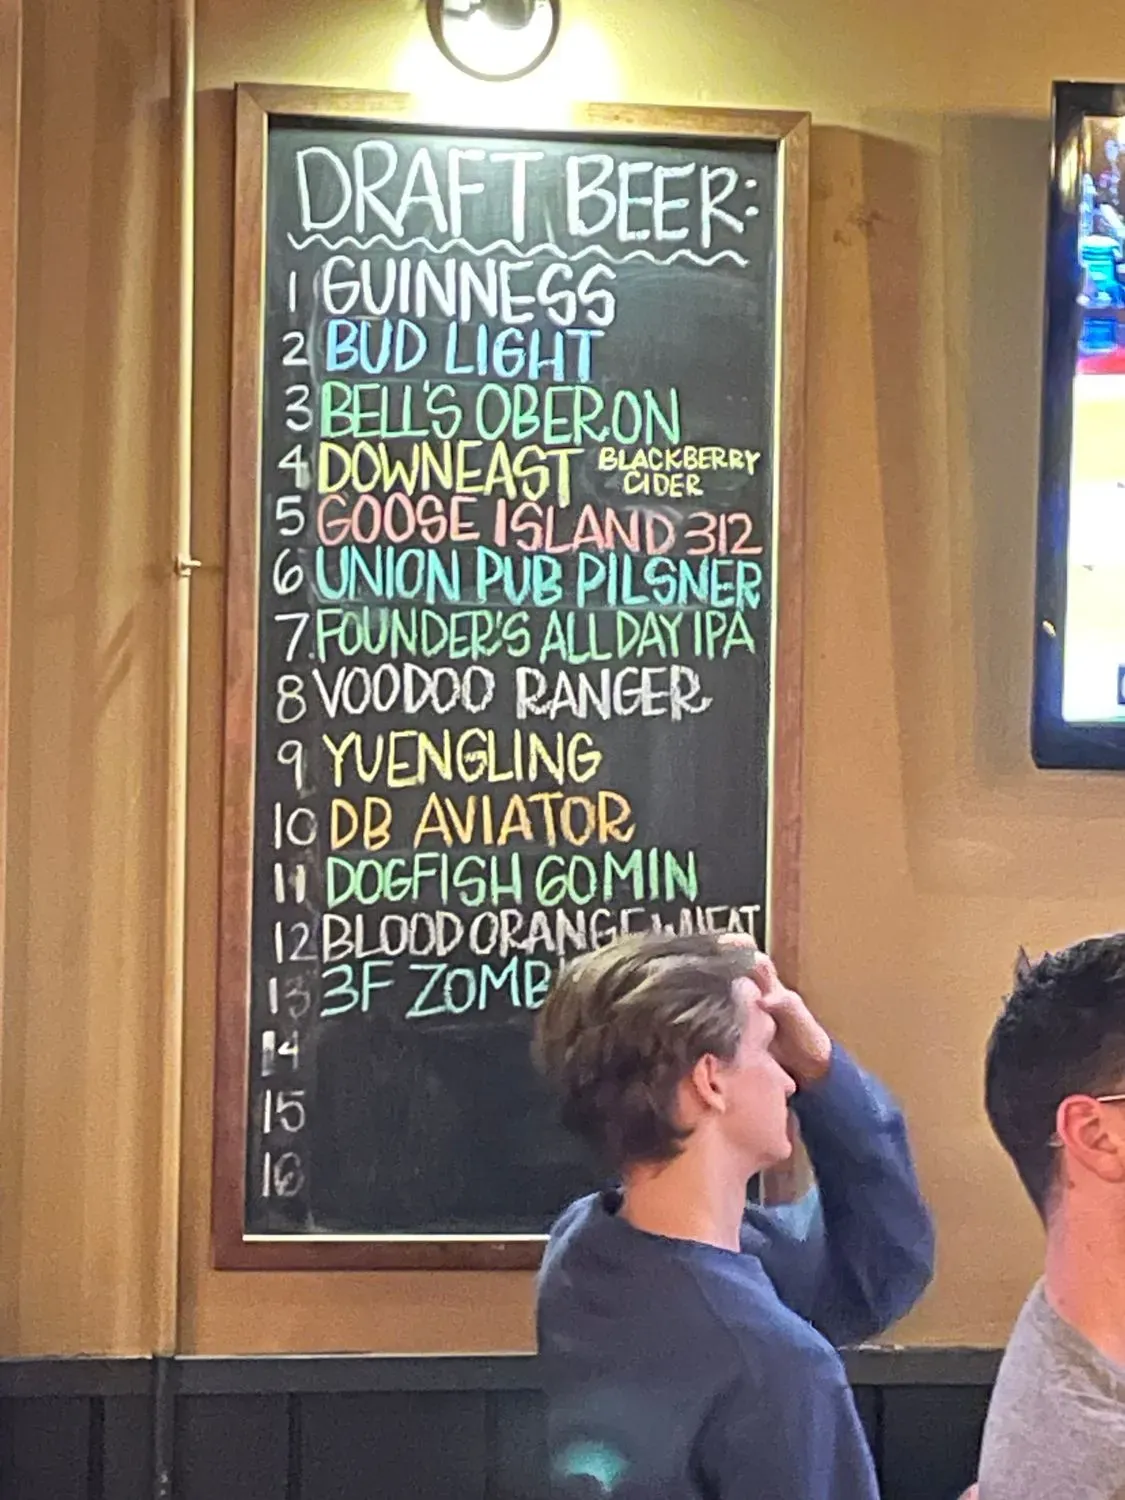 DRAFT BEER:
1 GUINNESS
2 BUD LIGHT
3 BELL'S OBERON
4 DOWNEAST BLACKBERRY CIDER
5 GOOSE ISLAND 312
6 UNION PUB PILSNER
7. FOUNDER'S ALL DAY IPA
8 VOODOO RANGER
9 YUENGLING
10 DB AVIATOR
11 DOGFISH 60 MIN
12 BLOOD ORANGE WHEAT
13 3F ZOMB
14
15
16